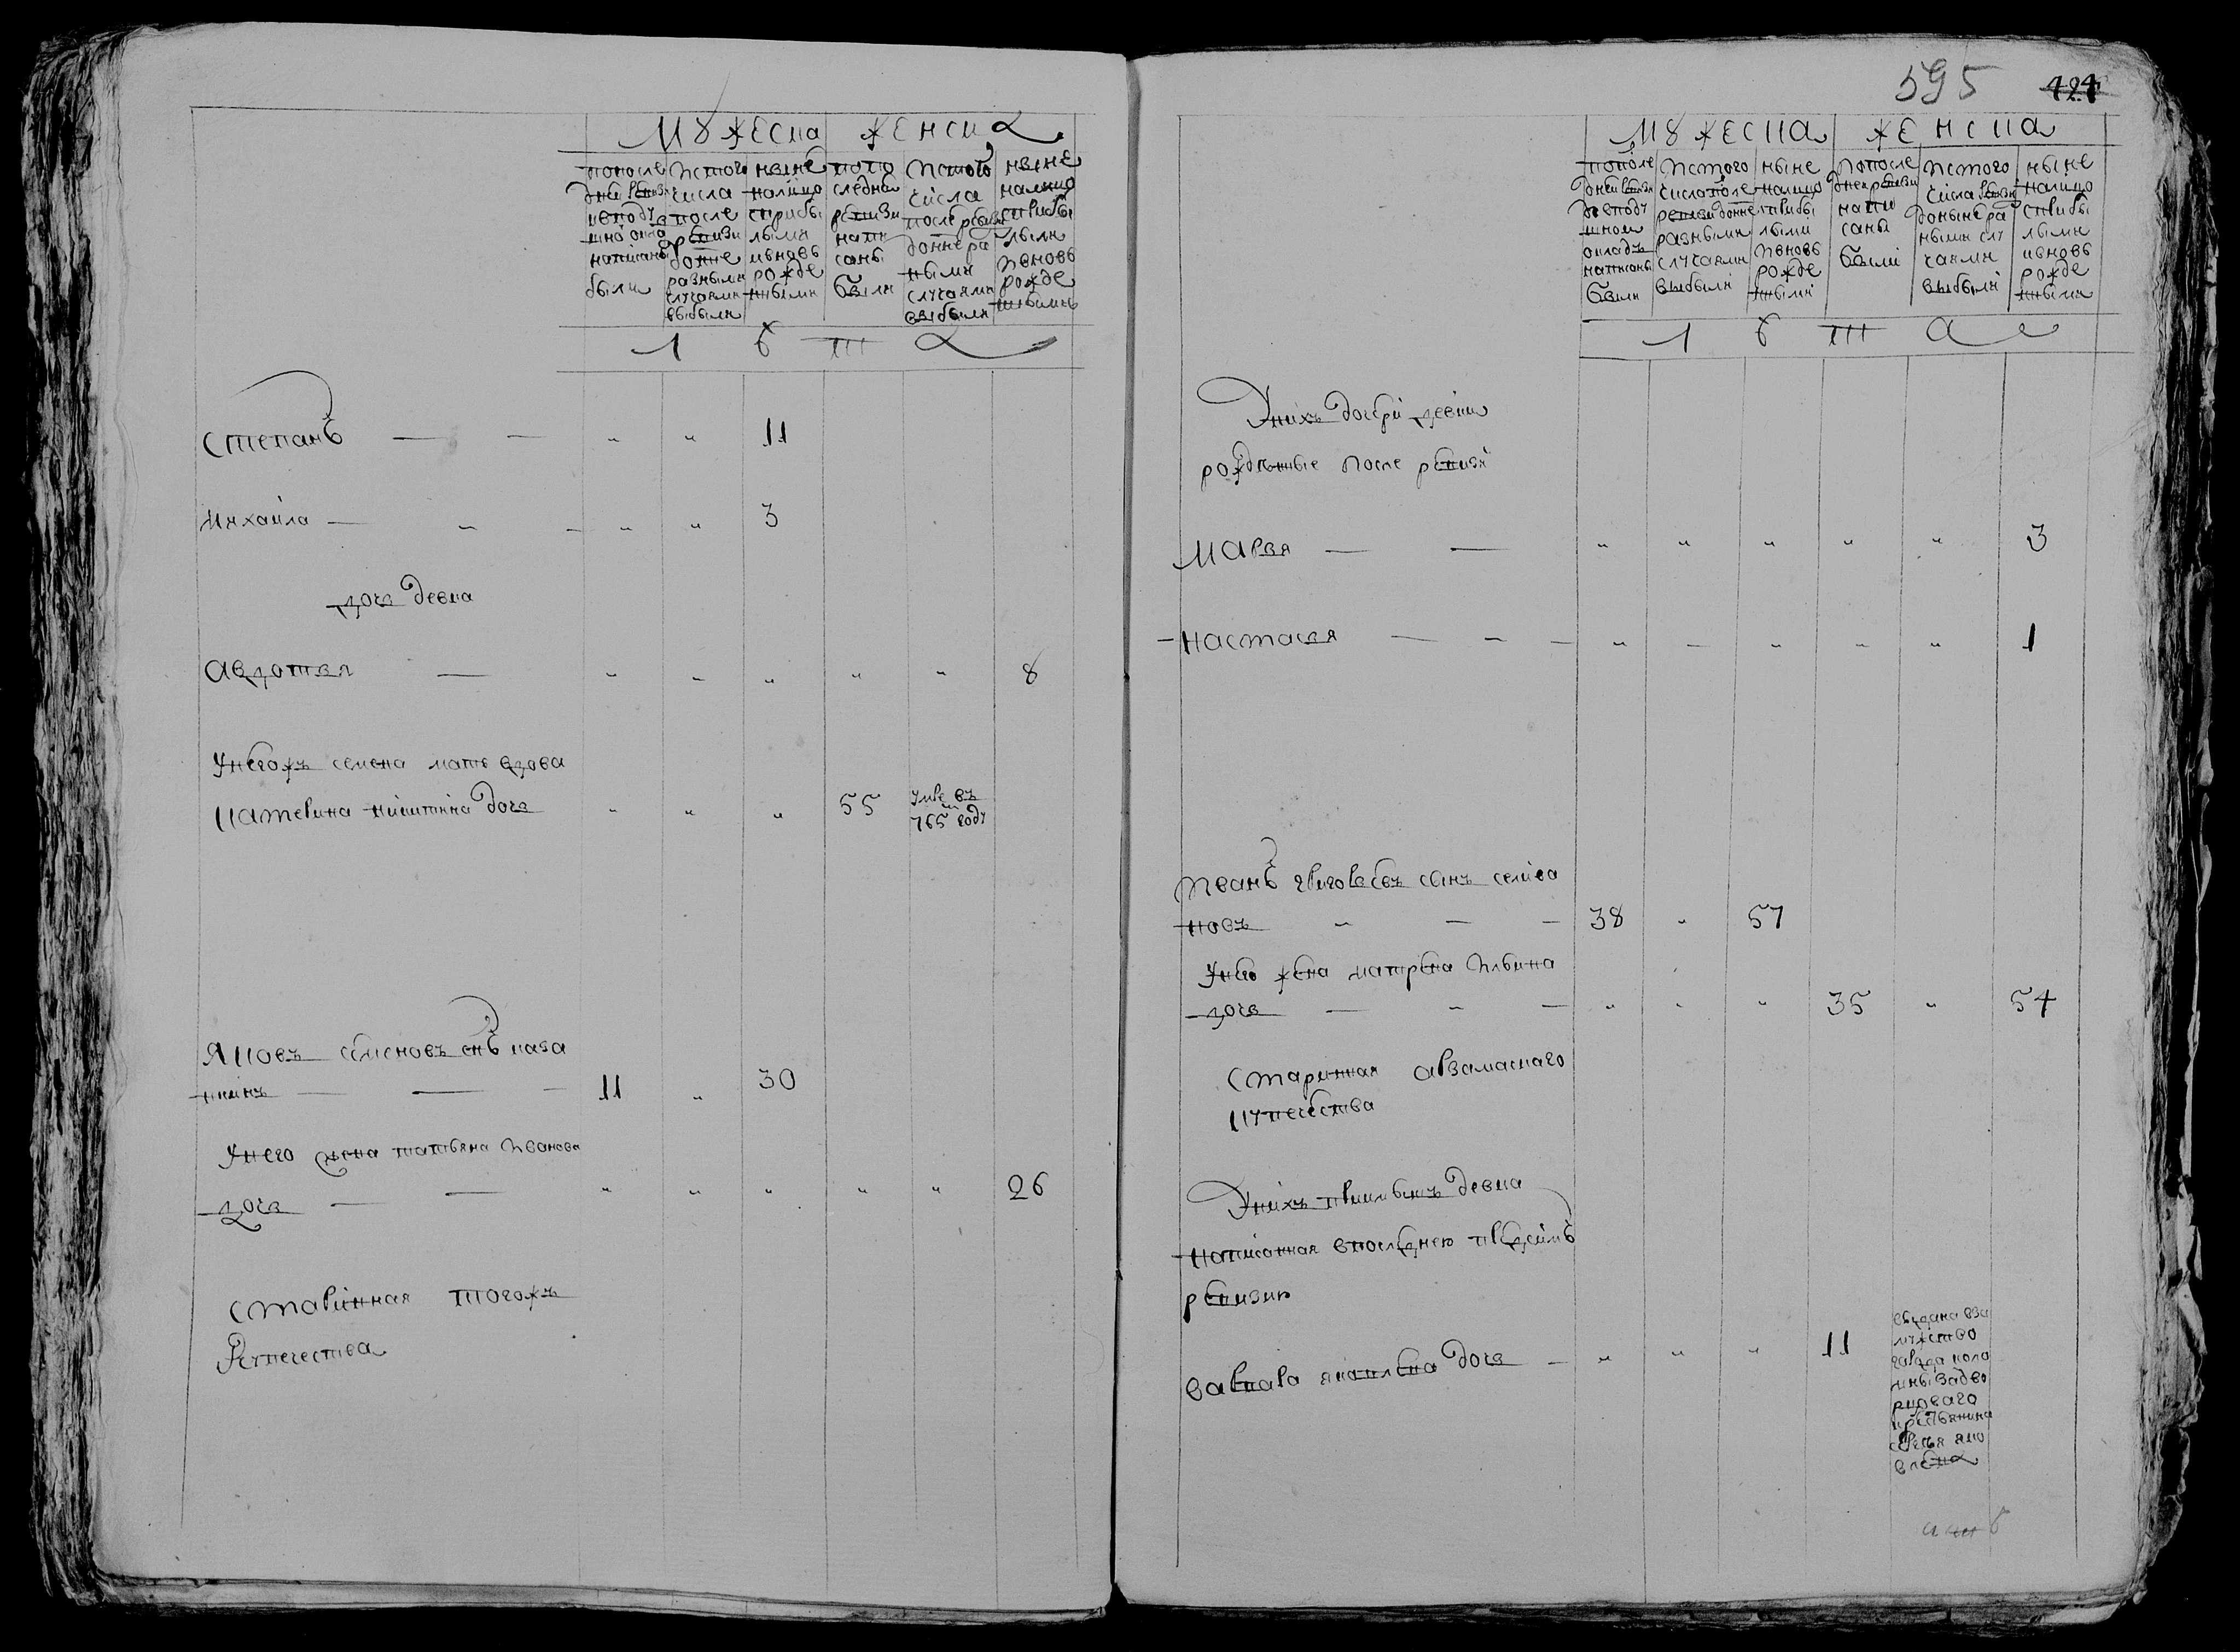 мужеска женска
попосле
дней ревизи
вподу
шно окла
написаны
были
ис того
числа
после
ревизи
до нне
разными
случаями
выбыли
ныне
налицо
с прибы
лыми
и вновь
рожде
нными
попо
следней
ревизи
напи
саны
были
ис того
числа
после ревизи
до нне ра
ными
случаями
выбыли
ныне
налицо
с прибы
лыми
и вновь
рожде
нными
л б т а
Степанъ 11
Михаила 3
дочь девка
Авдотья 8
У негожъ семена мать вдова
катерина никитина дочь 55 умре въ
765 году
Яковъ семеновъ снъ каза
кинъ 11 30
У него жена татьяна Иванова
дочь 26
старинная тогожъ
купечества
595 424
мужеска женска
попосле
дней ревизи
в поду
шном
окладъ
написаны
были
ис того
числа после
ревизи до нне
разными
случаями
выбыли
ныне
налицо
с прибы
лыми
и вновь
рожде
ными
попосле
дней ревизи
напи
саны
были
ис того
числа ревизи
до ныне ра
ными слу
чаями
выбыли
ныне
налицо
с прибы
лыми
и вновь
рожде
нными
л б т а
У нихъ дочери девки
рожденные после ревизи
Марья 3
Настасья 1
Иванъ григорьевъ сынъ селива
новъ 38 57
У нево жена матрена Ильина
дочь 35 54
старинная арзамаскаго
купечества
У нихъ приимышъ девка
написанная в последнею пред симъ
ревизию
варвара яковлева дочь 11 выдана вза
мужство
города коло
мны задво
рковаго
крестьянина
сергея яко
влева